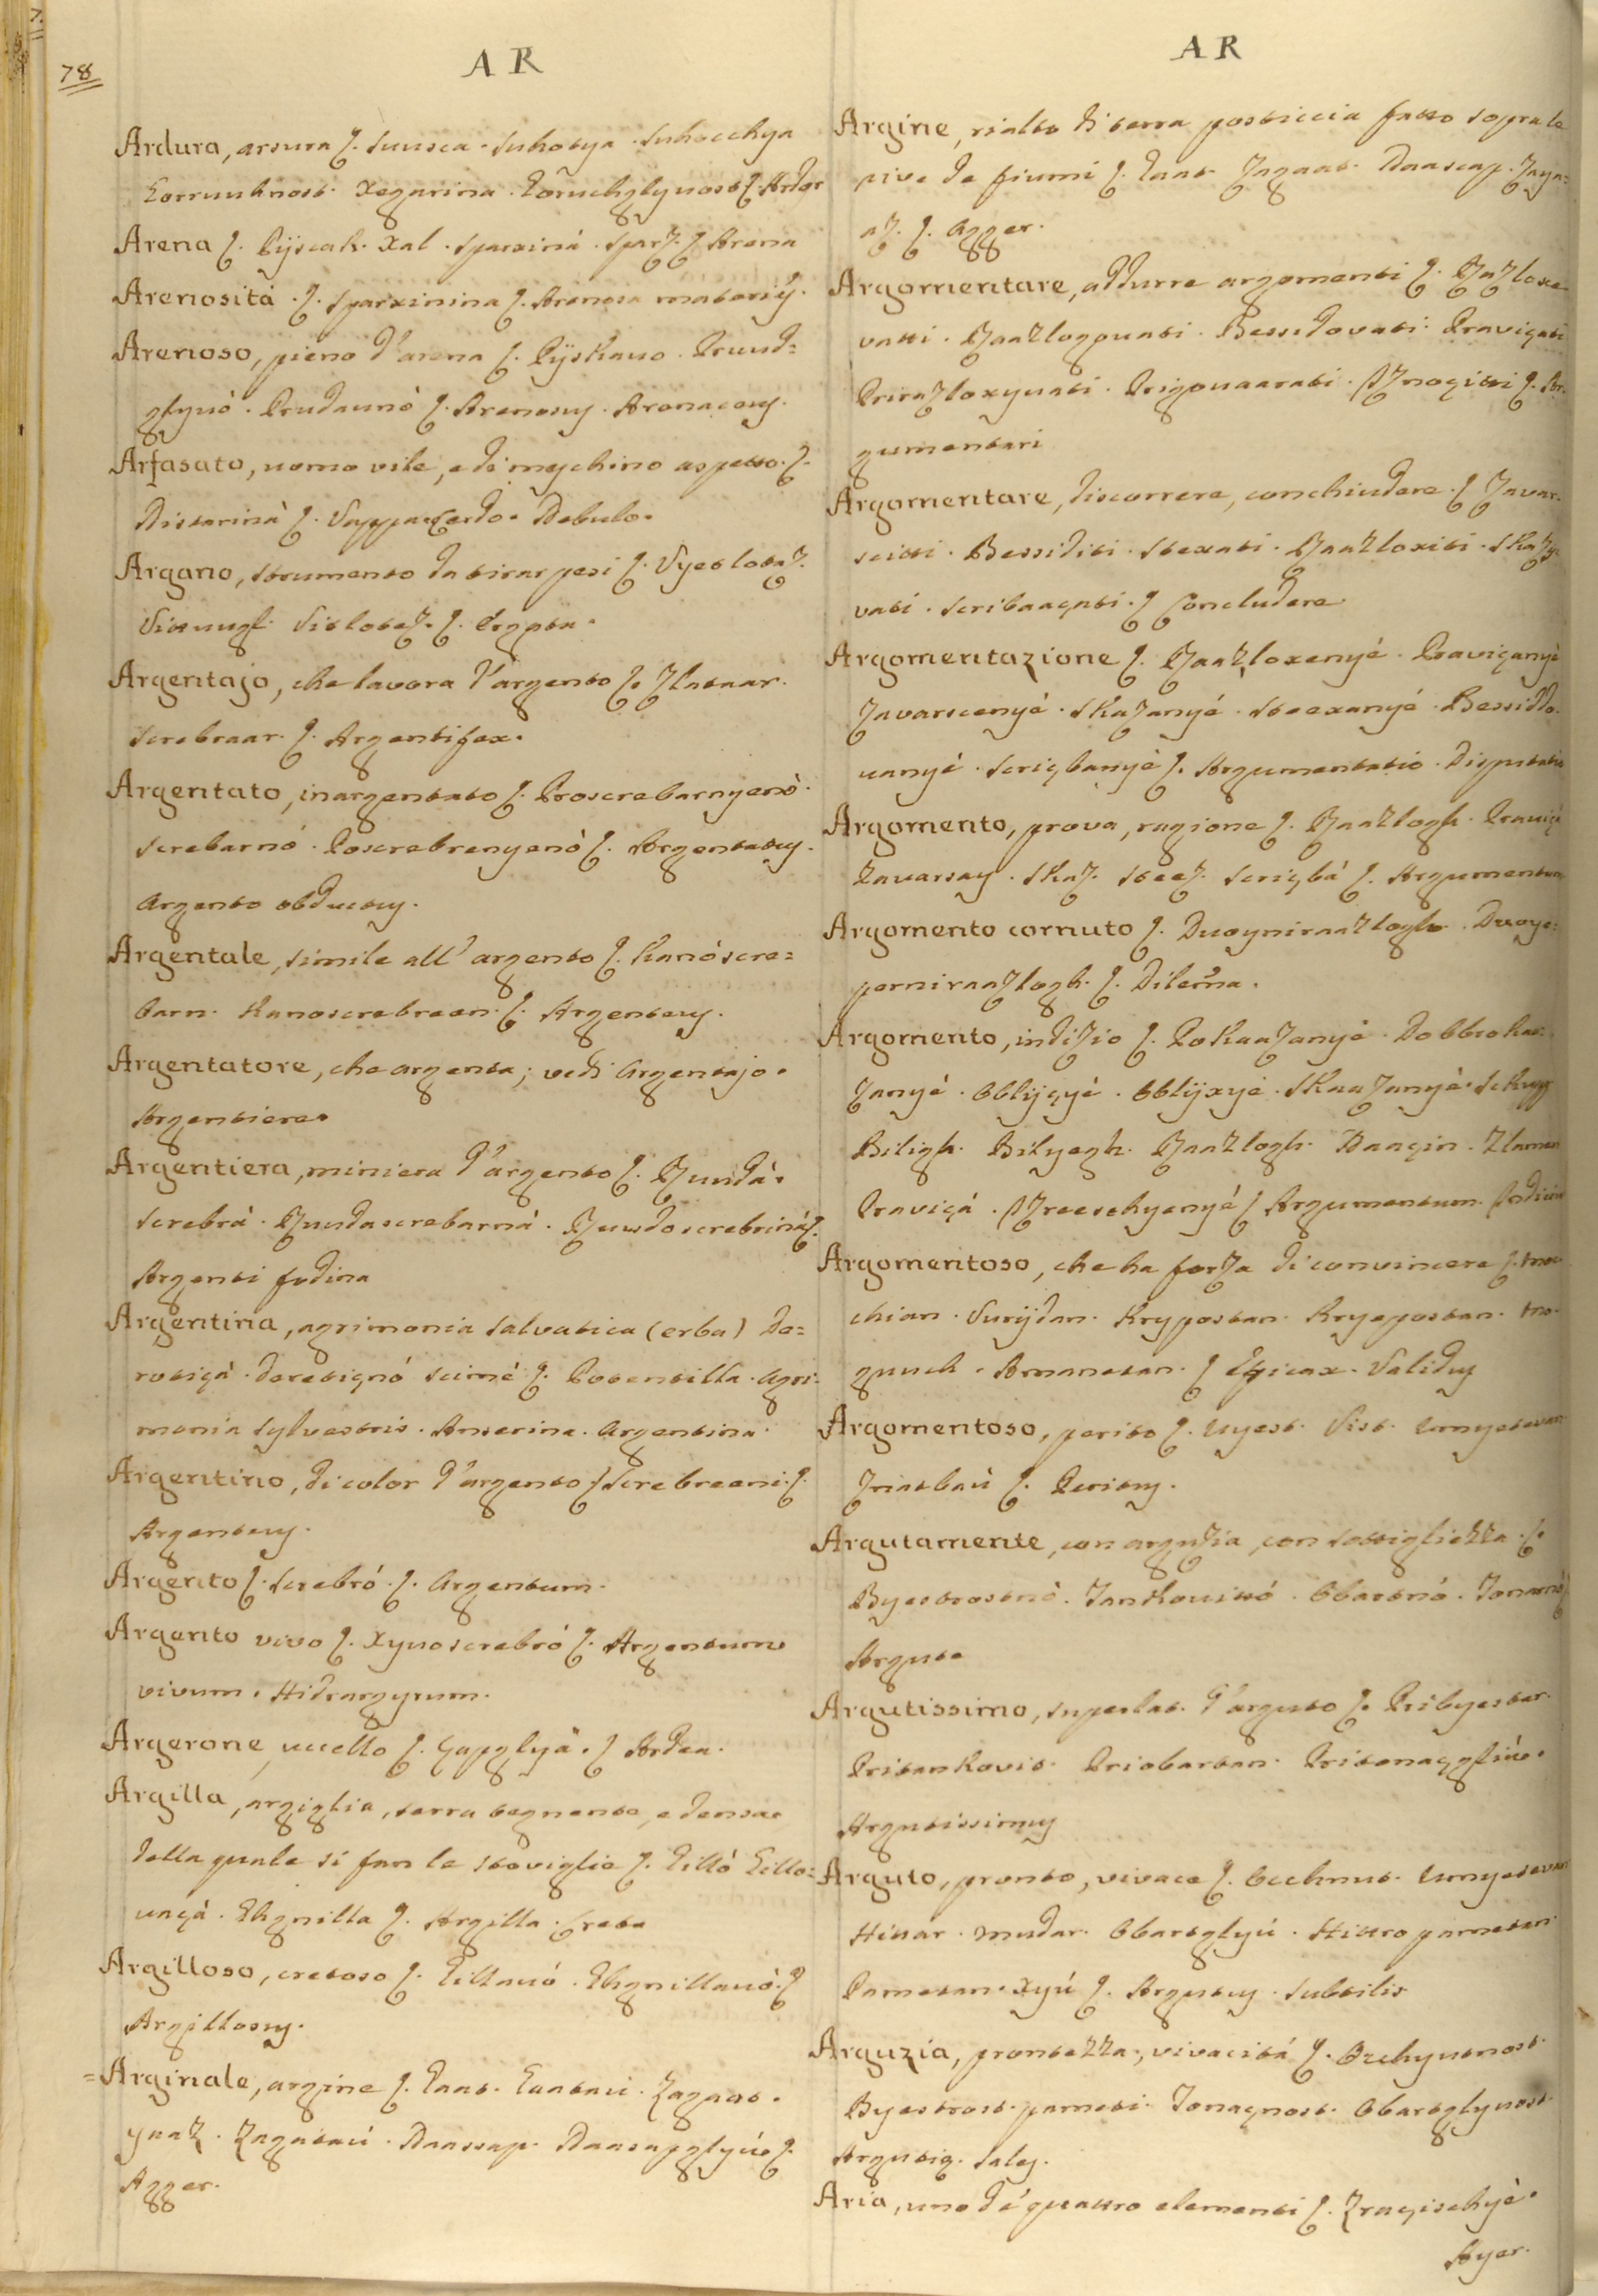 78
A R
Ardura, arsura ſ. Suusca. Suhotya. Suhocchya
Gorruuhnost. Xegarina. Goruchglyvost ſ. Ardor
Arena ſ. Pijscak. Xal. Sparxinà. Sparz. ſ. Arena
Arenosità. ſ. Sparxinina ſ. Arenosa materies.
Arenoso, pieno d'arena ſ. Pijskavo. Pruud=
glyvò. Prudaunò ſ. Arenosus. Arenaceus.
Arfasato, uomo vile, e di meschino aspetto. ſ.
Distarinà ſ. Vappa. Cerdo. Debulo.
Argano, strumento da tirar pesi ſ. Vyetlotaz.
Vitlotaz. ſ. Ergata.
Argentajo, che lavora l'argento ſ. Zlataar.
Screbraar. ſ. Argentifex.
Argentato, inargentato ſ. Proscrebarnyenò.
Screbarnò. Poscrebrenyenò ſ. Argentatus.
Argento obductus.
Argentale, simile all'argento ſ. Kanòscre=
barn. Kanoscrebreen. ſ. Argenteus.
Argentatore, che argenta; vedi Argentajo.
Argentiere.
Argentiera, miniera d'argento ſ. Ruudà.
Screbrà. Ruudascrebarnà. Ruudoscrebrinà ſ.
Argenti fodina
Argentina, agrimonia salvatica (erba) De=
rotiçà. Deretignó scimè ſ. Potentilla. Agri=
monia sylvestris. Anserina. Argentina.
Argentino, di color d'argento ſ. Screbreeni. ſ.
Argenteus.
Argento ſ. Screbró. ſ. Argentum.
Argento vivo ſ. Xyvoscrebró ſ. Argentum
vivum. Hidrargyrum.
Argerone, uccello ſ. Çapglyà. ſ. Ardea.
Argilla, argiglia, terra tegnente, e densa
della quale si fan le stoviglie ſ. Gillò Gillo=
vaçà. Ghgnilla ſ. Argilla. Creta
Argilloso, cretoso ſ. Gillavó. Ghgnillavò. ſ.
Argillosus.
=Arginale, argine ſ. Gaat. Gaatau. Zagaat.
yaaz. Zagatau. Daassap. Daasapglyùo ſ.
Agger.
A R
Argine, rialto di terra posticcia fatto sopra le
rive de fiumi ſ. Gaat. Zagaat. Daascap. Zaya=
az. ſ. Agger.
Argomentare, addurre argomenti ſ. Raazloxe=
vatti. Raazlogovati. Bessidovati. Praviçati
Prirazloxyvati. Prigovaarati. Iznogitti ſ. Ar=
gumentari
Argomentare, discorrere, conchiudere. ſ. Zavar=
scitti. Bessiditi. Stexati. Raazloxiti. Skazy=
vati. Scribaaçati. ſ. Concludere
Argomentazione ſ. Raazloxenyé. Praviçanyé
Zavarscenyé. Skazanyé. Steexanyé. Bessido=
vanyé. Scriçbanyé ſ. Argumentatio. Disputatio
Argomento, prova, ragione ſ. Raazlogh. Praviçà
Zavarsay. Skaz. Steez. Scriçbà ſ. Argumentum
Argomento cornuto ſ. Dvoyniraazlogh. Dvoye=
perniraazlogh. ſ. Dilema.
Argomento, indizio ſ. Pokaazanyé. Dobbrokaa=
zanyé. Obliçyé. Oblijxyé. Skaazanyé.
Biligh. Bilyegh. Raazlogh. Daaçin. Zlamen
Praviçà. Izreeschyenyé ſ. Argumentum. Indicium
Argomentoso, che ha forza di convincere ſ. Mo=
chian. Vurijdan. Krypostan. Kryepostan. Mo=
guuch. Amanetan. ſ. Efficax. Validus
Argomentoso, perito ſ. Uyest. Vist. Umyetevan
Zriatbau ſ. Peritus.
Argutamente, con arguzia, con sottigliezza. ſ.
Byestrostnò. Tankovittó. Obartnó.
Argute
Argutissimo, superlat. d'arguto ſ. Pribyestar.
Pritankovit. Priobartan.
Argutissimus
Arguto, pronto, vivace ſ. Occhnut. Umyetevan
Hittar. Mudar. Obartglyú. Hittro pametan.
Pametan. Xyú ſ. Argutus. Subtilis
Arguzia, prontezza, vivacità ſ. Ozchyutnost.
Byestrost. pameti. Tonaçnost. Obartglyvost.
Argutiæ. Sales.
Aria, uno de' quattro elementi ſ. Zraçischyé.
Ayer.